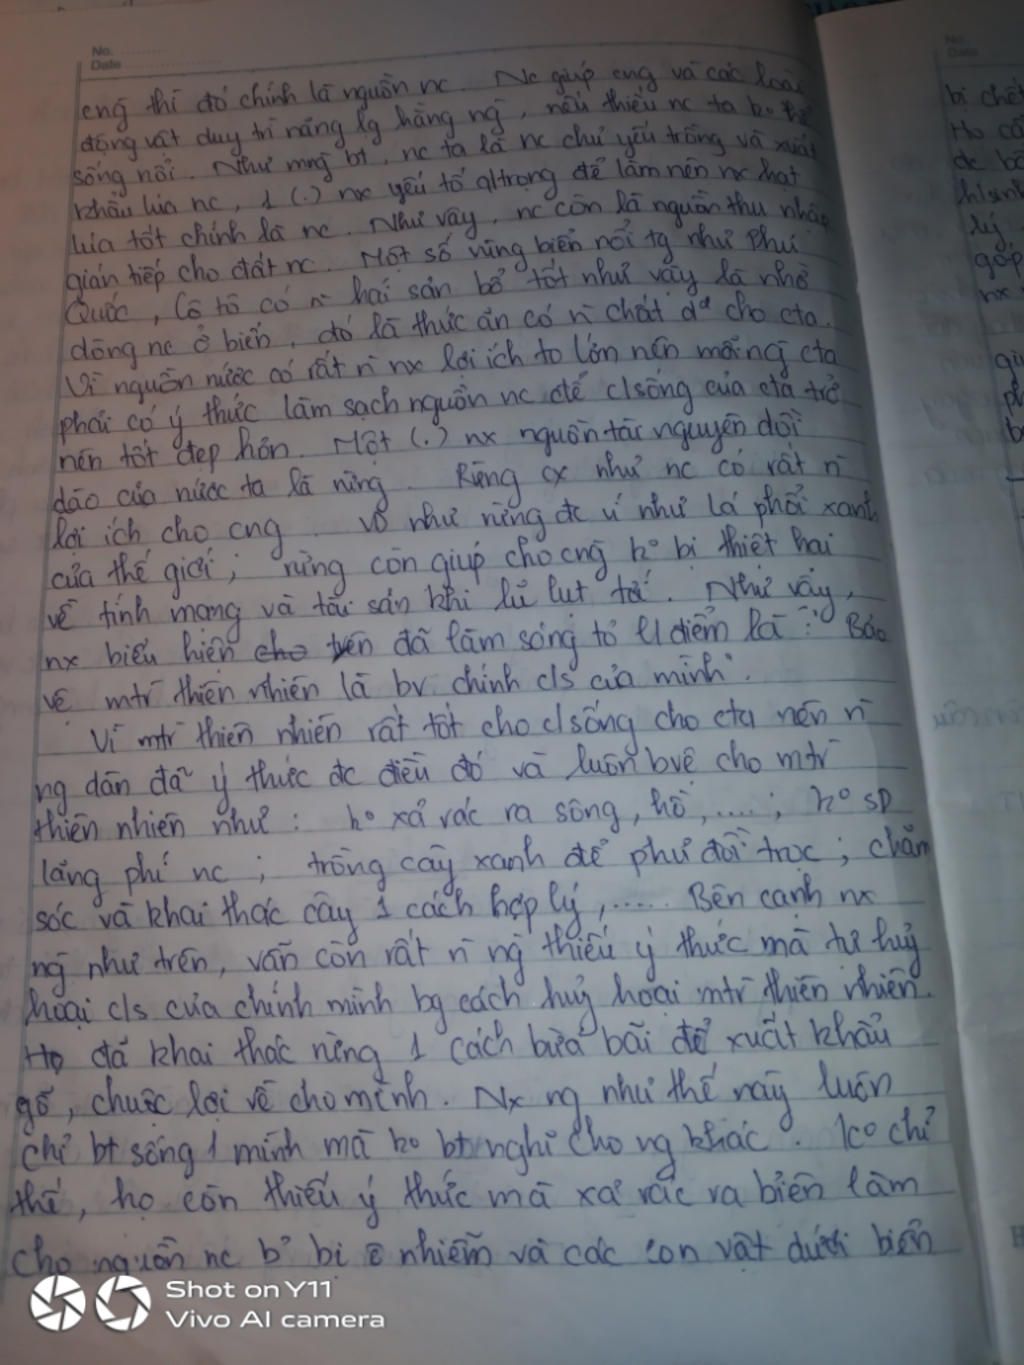 No.
Date
cng thì đó chính là nguồn nc. Nc giúp cng và các loài
động vật duy trì năng lg hằng ng, nếu thiếu nc ta ko thể
sống nổi. Như mng bt, nc ta là nc chủ yếu trồng và xuất
khẩu lúa nc, 1 (.) nx yếu tố q/trọng để làm nên nx hạt
lúa tốt chính là nc. Như vậy, nc còn là nguồn thu nhập
gián tiếp cho đất nc. Một số vùng biển nổi tg như Phú
Quốc, Cô tô có n hải sản bổ tốt như vậy là nhờ
dòng nc ở biển, đó là thức ăn có n chất d² cho cta.
Vì nguồn nước có rất n nx lợi ích to lớn nên mỗi ng cta
phải có ý thức làm sạch nguồn nc để c/sống của cta trở
nên tốt đẹp hơn. Một (.) nx nguồn tài nguyên dồi
dào của nước ta là rừng. Rừng cx như nc có rất n
lợi ích cho cng. Vd như rừng đc ví như lá phổi xanh
của thế giới; rừng còn giúp cho cng ko bị thiệt hại
về tính mạng và tài sản khi lũ lụt tới. Như vậy,
nx biểu hiện trên đã làm sáng tỏ l/điểm là: "Bảo
vệ mtr thiên nhiên là bv chính c/s của mình".
Vì mtr thiên nhiên rất tốt cho c/sống cho cta nên n
ng dân đã ý thức đc điều đó và luôn bvệ cho mtr
thiên nhiên như: ko xả rác ra sông, hồ,....; ko SD
lãng phí nc; trồng cây xanh để phủ đồi trọc; chăm
sóc và khai thác cây 1 cách hợp lý,..... Bên cạnh nx
ng như trên, vẫn còn rất n ng thiếu ý thức mà tự huỷ
hoại c/s của chính mình bg cách huỷ hoại mtr thiên nhiên.
Họ đã khai thác rừng 1 cách bừa bãi để xuất khẩu
gỗ, chuộc lợi về cho mình. Nx ng như thế này luôn
chỉ bt sống 1 mình mà ko bt nghĩ cho ng khác. Ko chỉ
thế, họ còn thiếu ý thức mà xả rác ra biển làm
cho nguồn nc bị ô nhiễm và các con vật dưới biển
Shot on Y11
Vivo AI camera